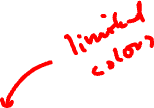 limited
colors